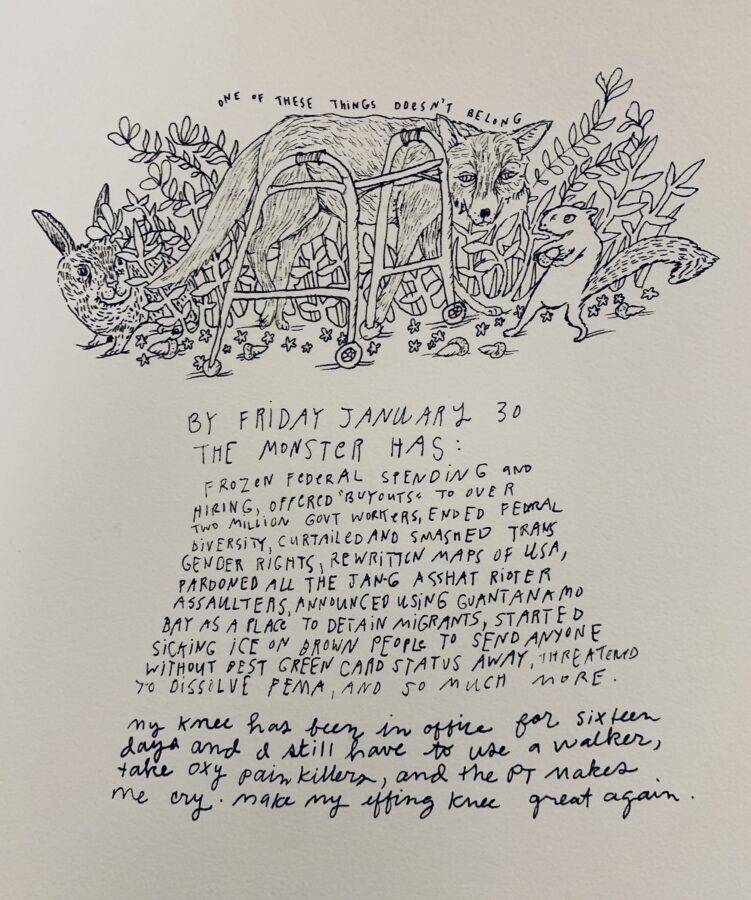 ONE OF THESE THINGS DOESN'T BELONG
BY FRIDAY JANUARY 30
THE MONSTER HAS:
FROZEN FEDERAL SPENDING AND
HIRING, OFFERED "BUYOUTS" TO OVER
TWO MILLION GOVT WORKERS, ENDED FEDERAL
DIVERSITY, CURTAILED AND SMASHED TRANS
GENDER RIGHTS, REWRITTEN MAPS OF USA,
PARDONED ALL THE JAN-6 ASSHAT RIOTER
ASSAULTERS, ANNOUNCED USING GUANTANAMO
BAY AS A PLACE TO DETAIN MIGRANTS, STARTED
SICKING ICE ON BROWN PEOPLE TO SEND ANYONE
WITHOUT BEST GREEN CARD STATUS AWAY, THREATENED
TO DISSOLVE FEMA, AND SO MUCH MORE.
my knee has been in office for sixteen
days and I still have to use a walker,
take oxy pain killers, and the PT makes
me cry. make my effing knee great again.